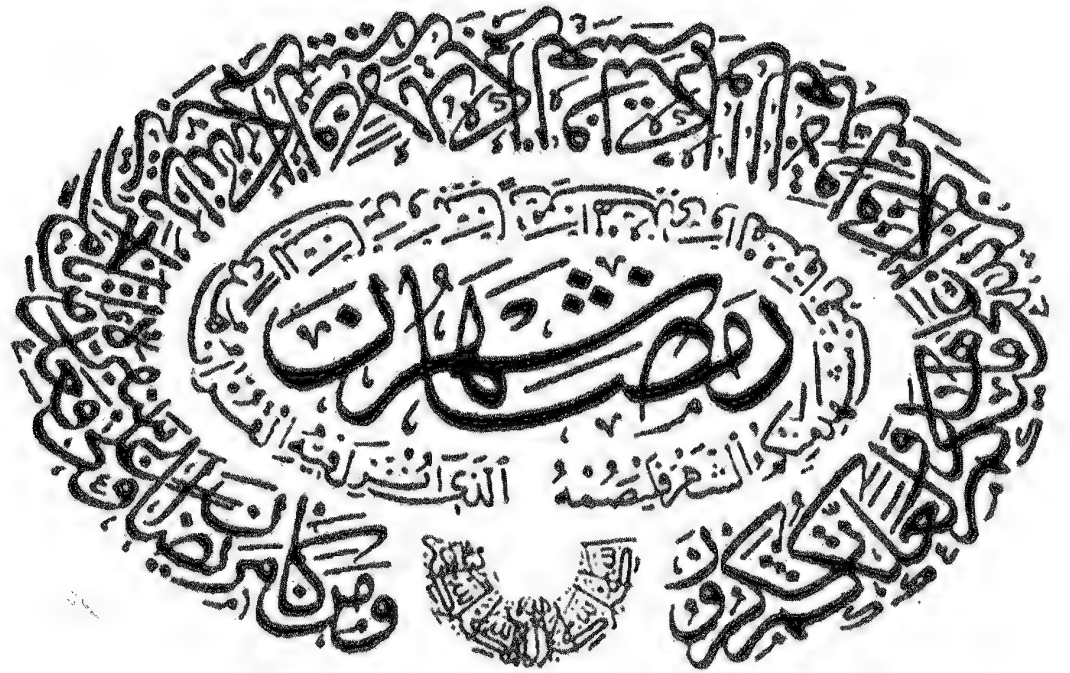 شهر رمضان
الذي أنزل فيه القرآن هدى للناس وبينات من الهدى والفرقان فمن شهد منكم الشهر فليصمه
ومن كان مريضا أو على سفر فعدة من أيام أخر يريد الله بكم اليسر ولا يريد بكم العسر ولتكملوا العدة ولتكبروا الله على ما هداكم ولعلكم تشكرون